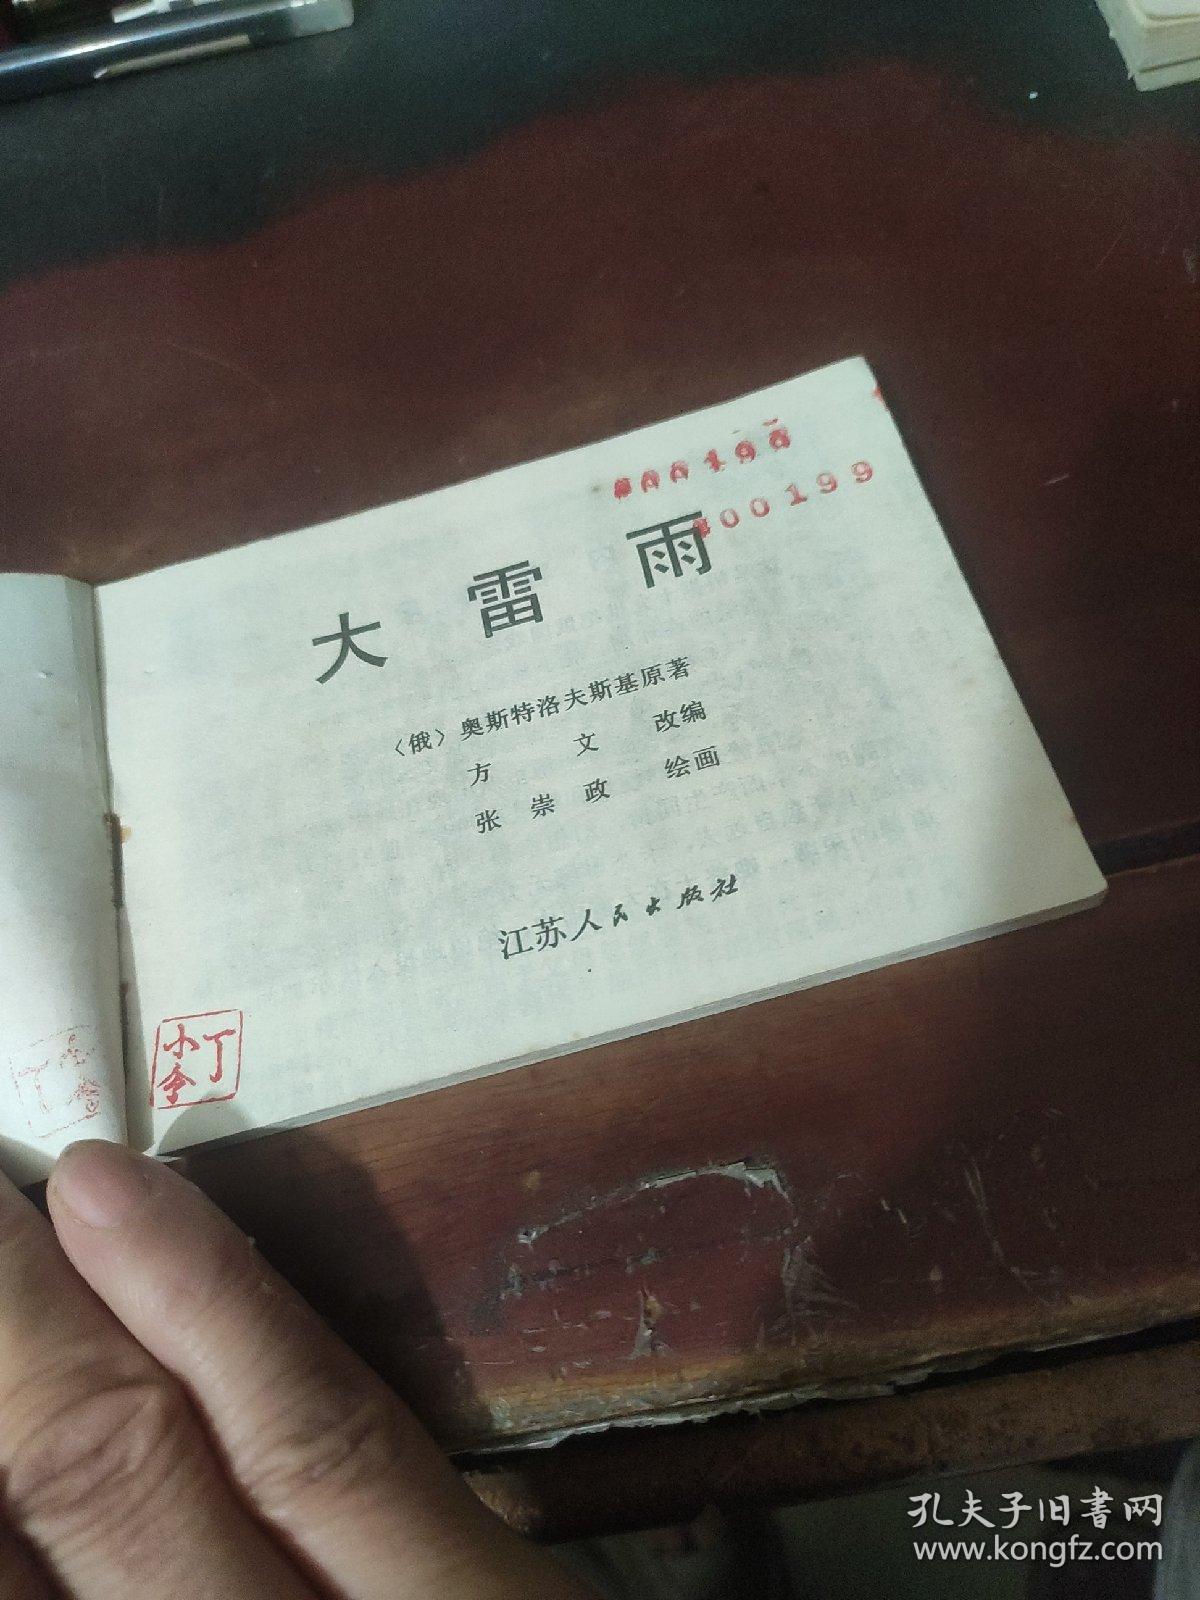 000198
000199
大雷雨
〈俄〉奥斯特洛夫斯基原著
方文 改编
张崇政 绘画
江苏人民出版社
孔夫子旧书网
www.kongfz.com